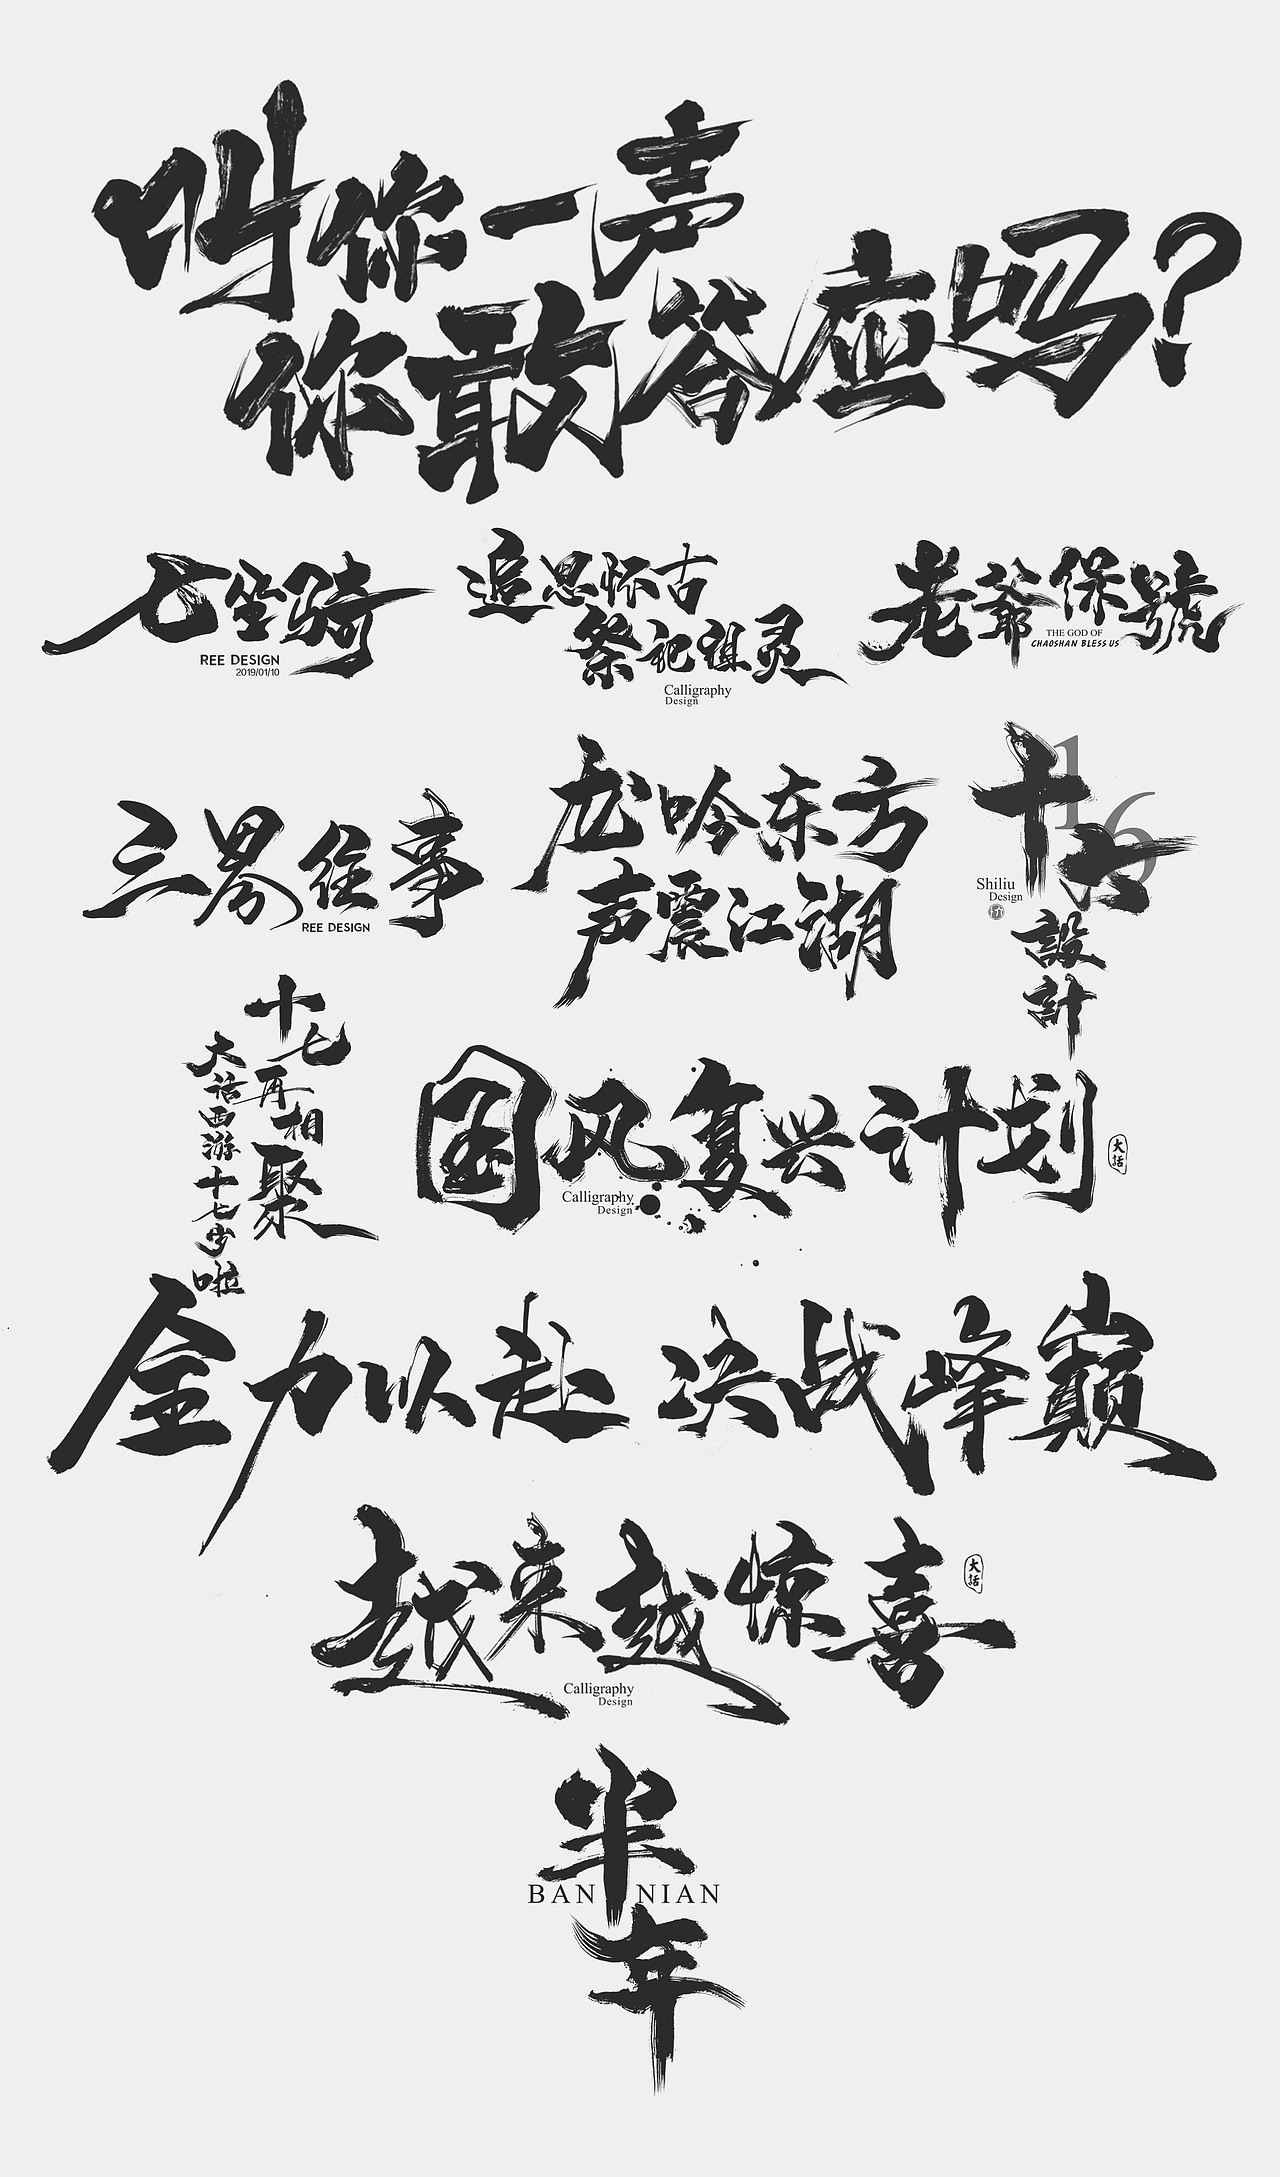 叫你一声
你敢答应吗?
七坐骑
REE DESIGN
2019/01/10
追思怀古
祭祀祖灵
Calligraphy
Design
老爺保號
THE GOD OF
CHAOSHAN BLESS US
三界往事
REE DESIGN
龙吟东方
声震江湖
16
十六
設計
Shiliu
Design
十七再相聚
大话西游十七岁啦
国风复兴计划
Calligraphy
Design
大話
全力以赴 决战峰巅
越来越惊喜
Calligraphy
Design
大話
半年
BAN NIAN